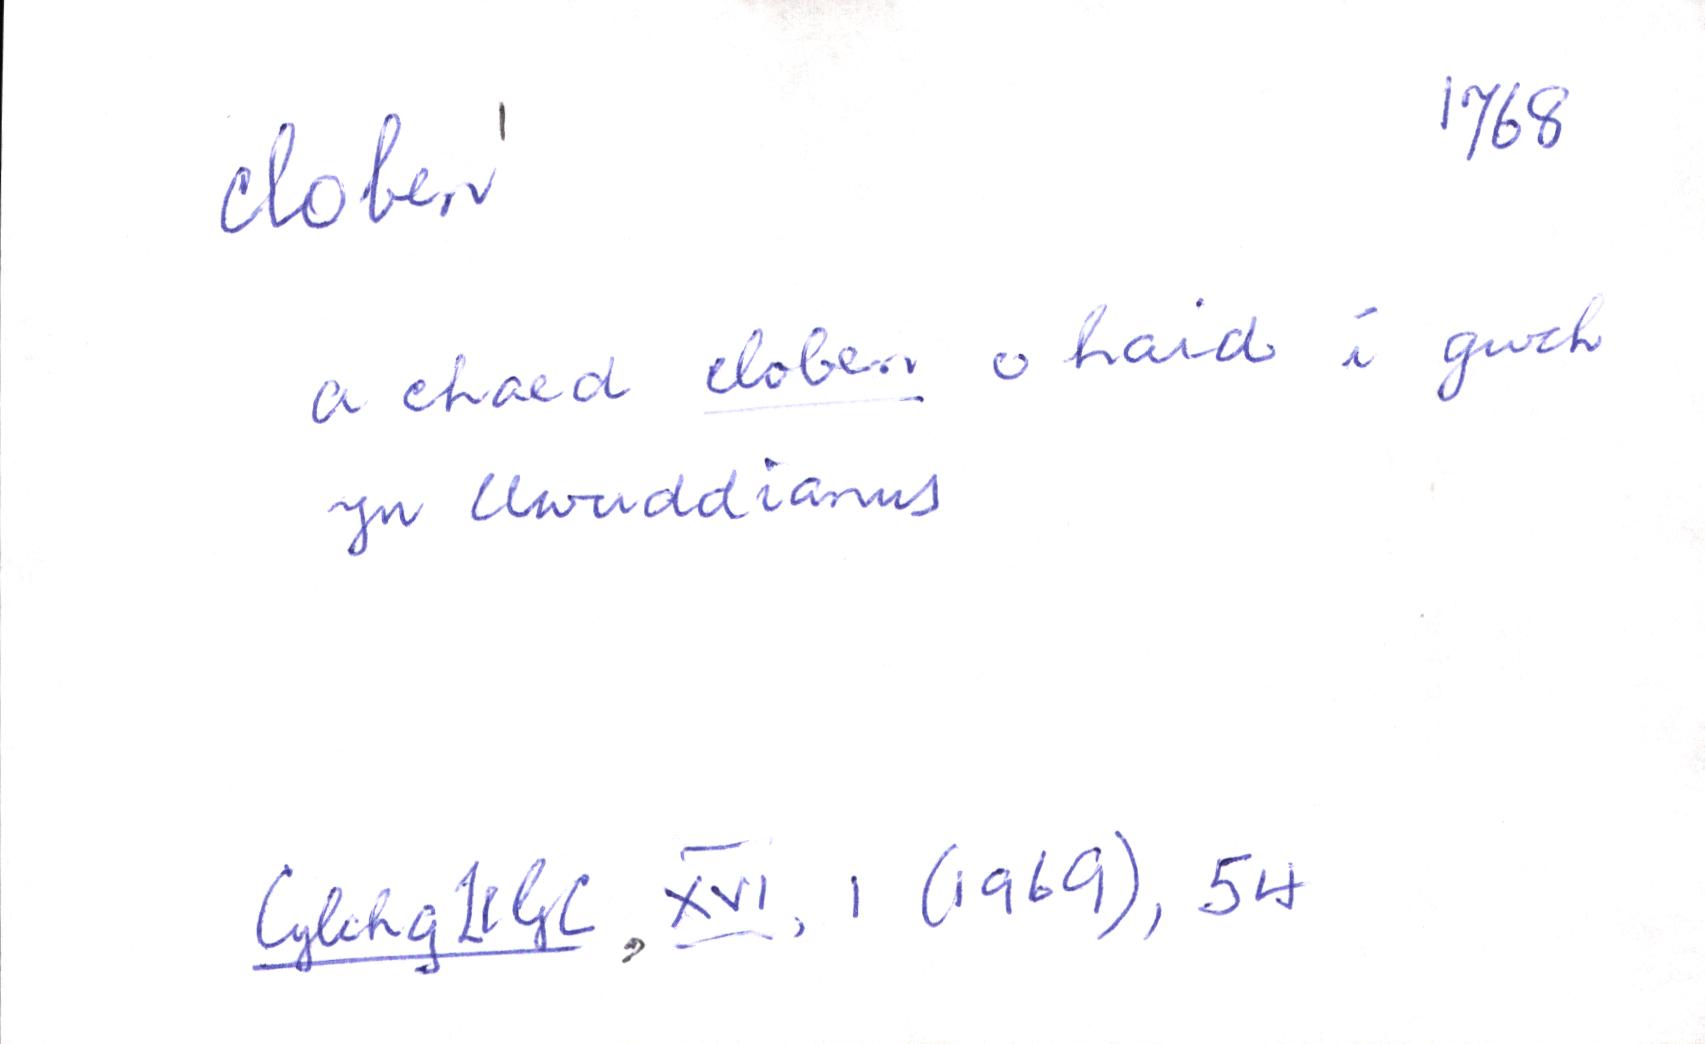 cloben¹
1768
a chaed cloben o haid i gwch
yn llwuddianus
Cylchg LlGC, XVI, 1 (1969), 54